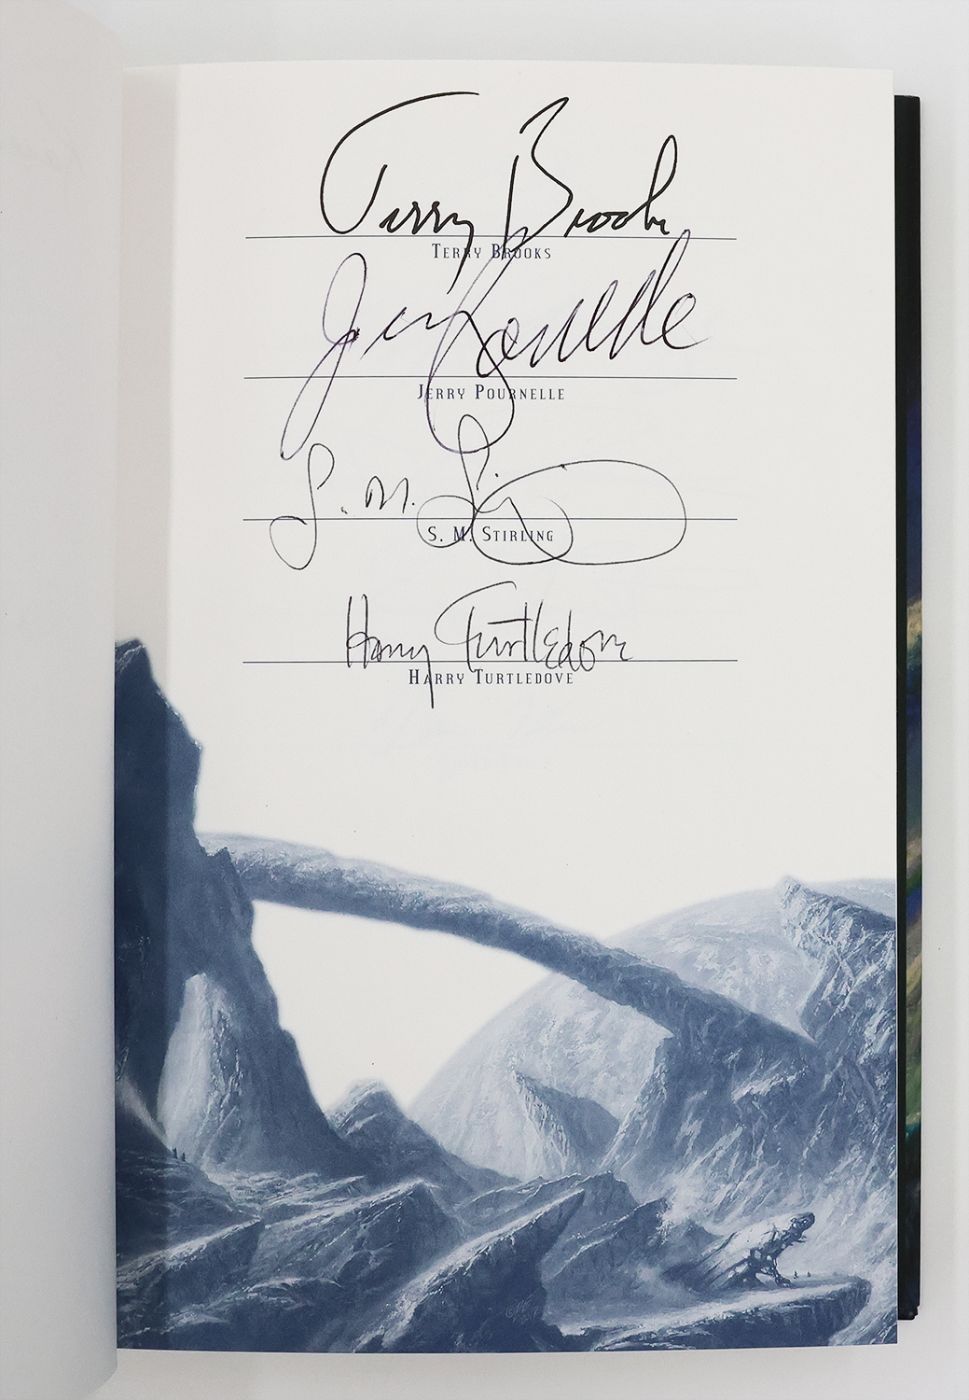 Terry Brooks
TERRY BROOKS
Jerry Pournelle
JERRY POURNELLE
S. M. Stirling
S. M. STIRLING
Harry Turtledove
HARRY TURTLEDOVE